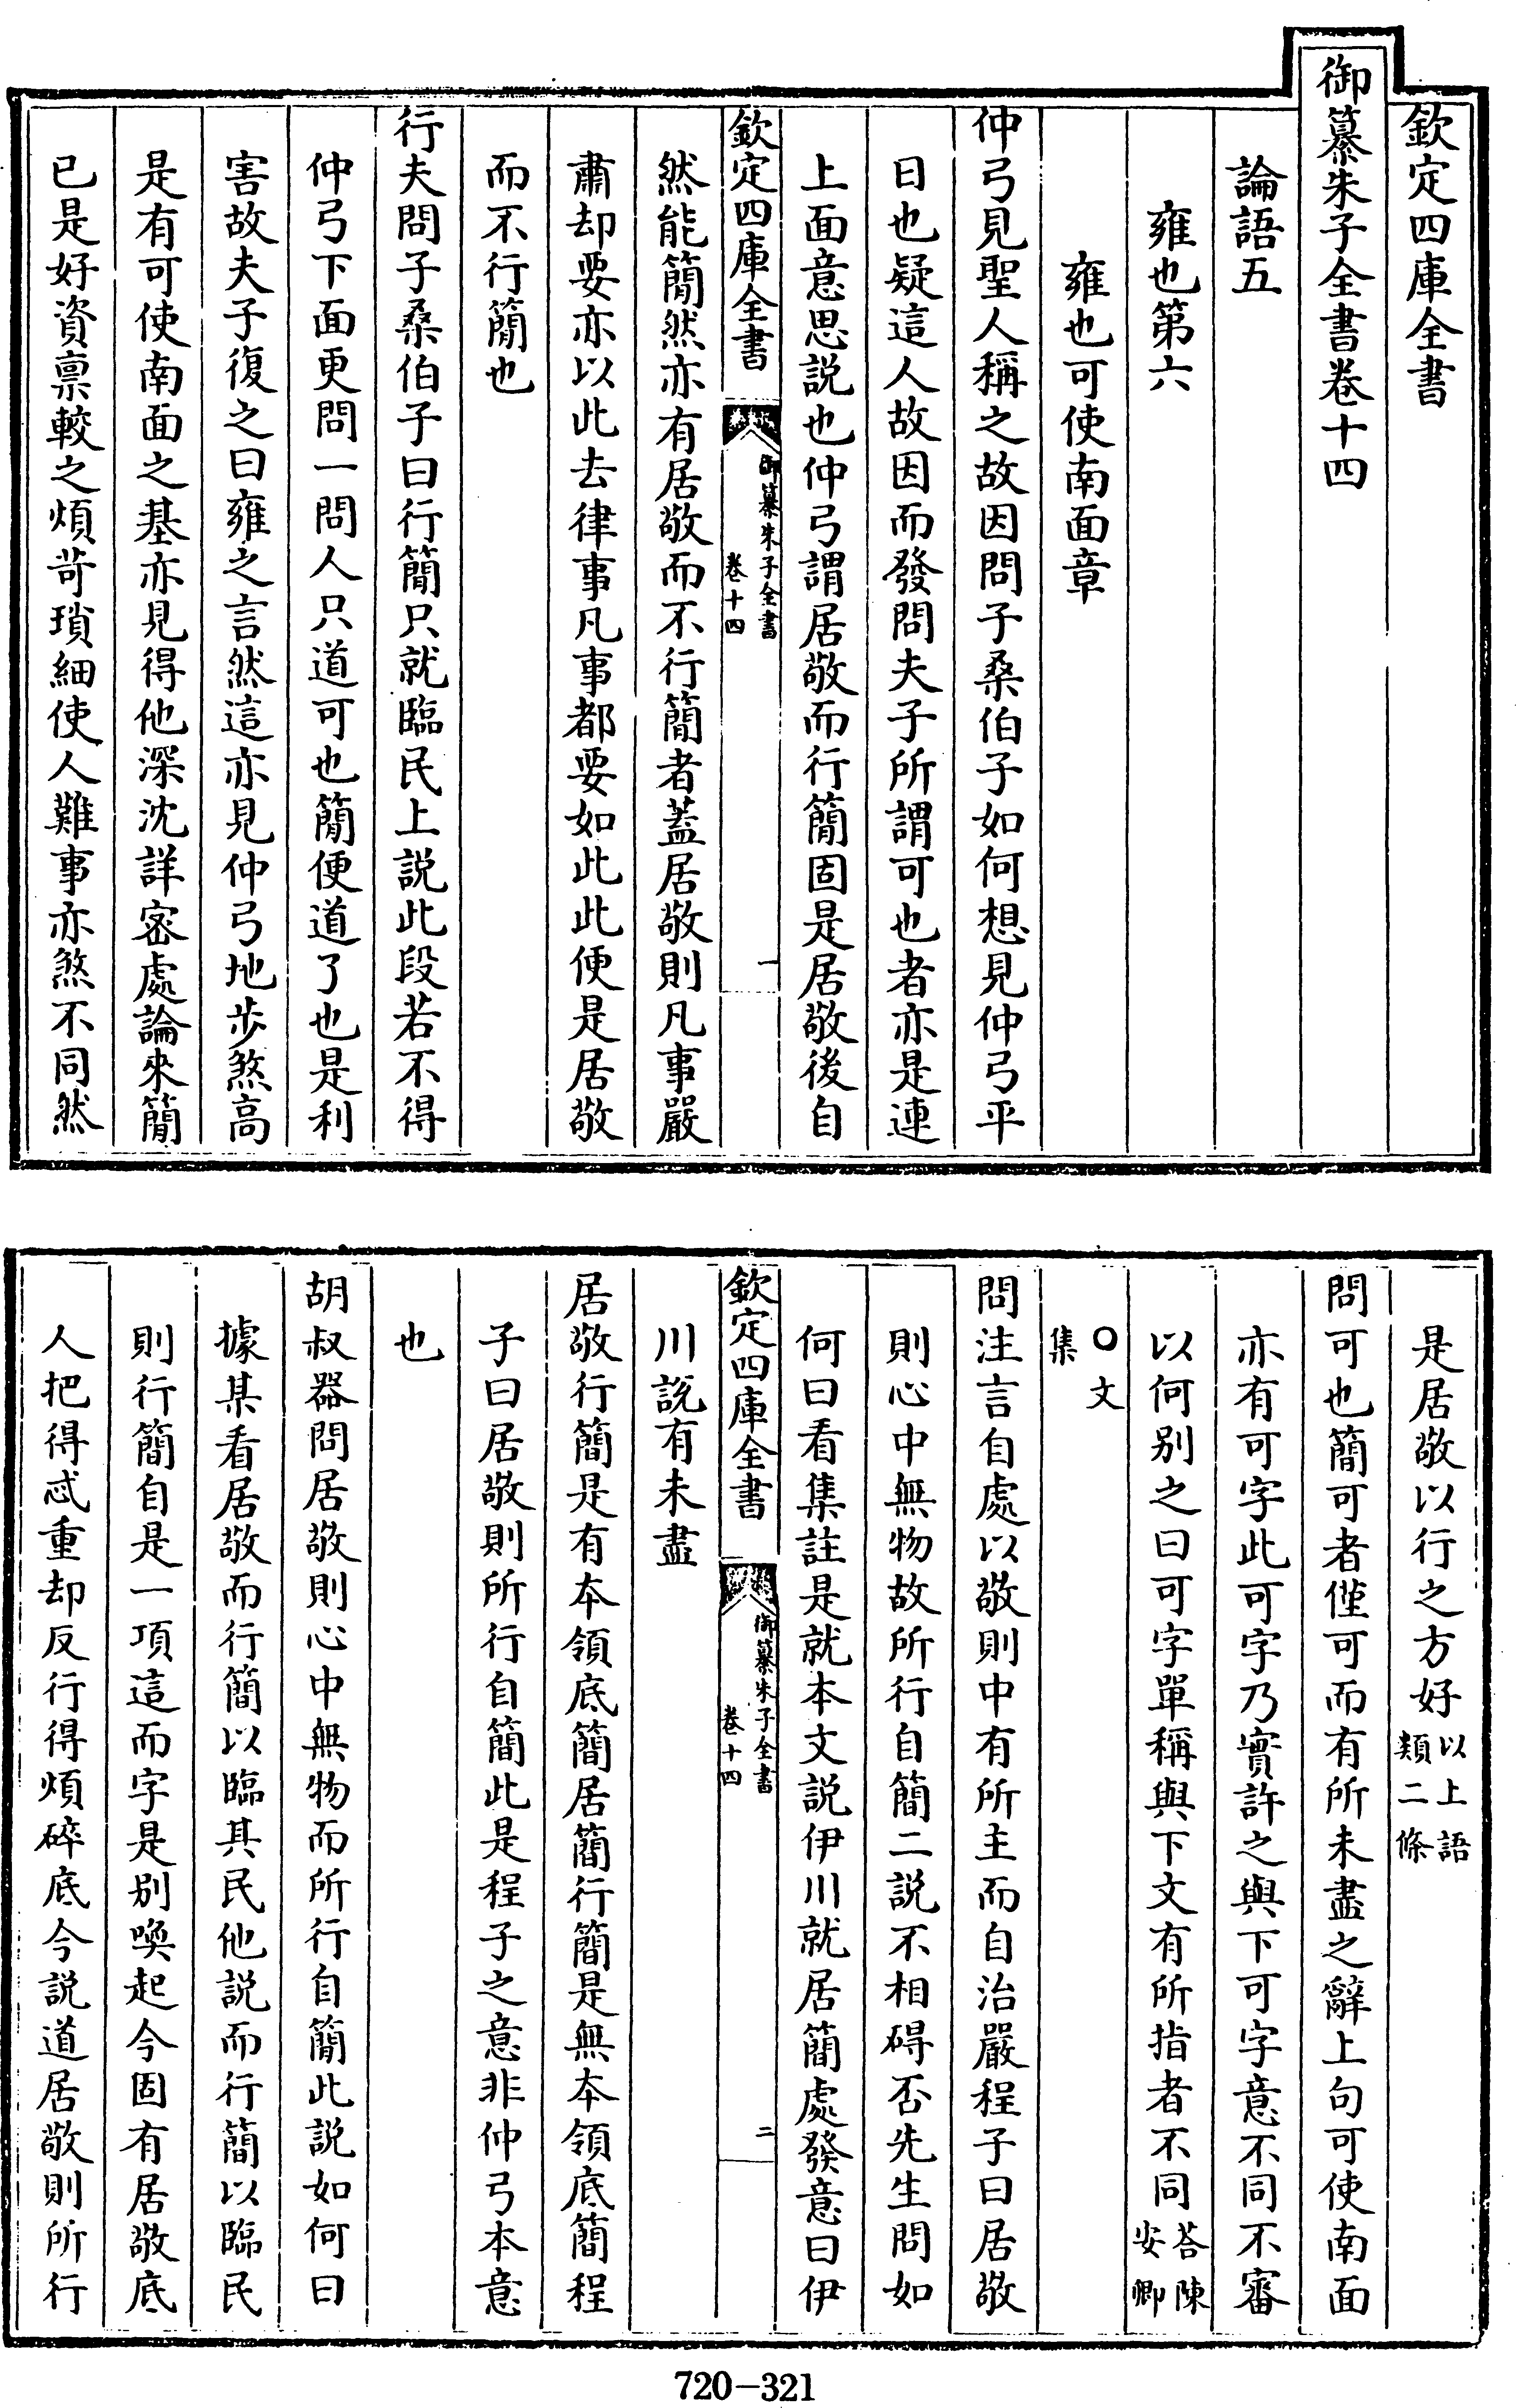 欽定四庫全書
御纂朱子全書卷十四
論語五
雍也第六
雍也可使南面章
仲弓見聖人稱之故因問子桑伯子如何想見仲弓平
日也疑這人故因而發問夫子所謂可也者亦是連
上面意思説也仲弓謂居敬而行簡固是居敬後自
欽定四庫全書
御纂朱子全書
卷十四
一
然能簡然亦有居敬而不行簡者蓋居敬則凡事嚴
肅却要亦以此去律事凡事都要如此此便是居敬
而不行簡也
行夫問子桑伯子曰行簡只就臨民上説此段若不得
仲弓下面更問一問人只道可也簡便道了也是利
害故夫子復之曰雍之言然這亦見仲弓地步煞高
是有可使南面之基亦見得他深沈詳密處論來簡
已是好資禀較之煩苛瑣細使人難事亦煞不同然
是居敬以行之方好以上語
類二條
問可也簡可者僅可而有所未盡之辭上句可使南面
亦有可字此可字乃實許之與下可字意不同不審
以何别之曰可字單稱與下文有所指者不同荅陳
安卿
○文
集
問注言自處以敬則中有所主而自治嚴程子曰居敬
則心中無物故所行自簡二説不相碍否先生問如
何曰看集註是就本文説伊川就居簡處發意曰伊
欽定四庫全書
御纂朱子全書
卷十四
二
川説有未盡
居敬行簡是有本領底簡居簡行簡是無本領底簡程
子曰居敬則所行自簡此是程子之意非仲弓本意
也
胡叔器問居敬則心中無物而所行自簡此説如何曰
據某看居敬而行簡以臨其民他説而行簡以臨民
則行簡自是一項這而字是别喚起今固有居敬底
人把得忒重却反行得煩碎底今説道居敬則所行
720-321